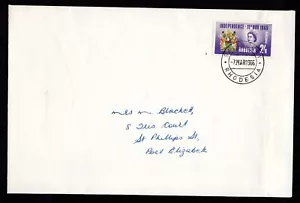 INDEPENDENCE - 11th NOV 1965
RHODESIA
2/6
-7 MAR 1966
RHODESIA
Mrs M. Blacket,
5 Iris Court
St Phillips St,
Port Elizabeth